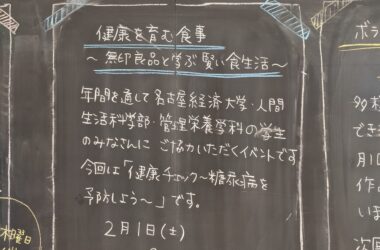 健康を育む食事
～無印良品と学ぶ賢い食生活～
年間を通して名古屋経済大学・人間
生活科学部・管理栄養学科の学生
のみなさんに ご協力いただくイベントです
今回は「健康チェック～糖尿病を
予防しよう～」です。
2月1日(土)
曜日
ボラ
多様
でき
月1
作
いま
次回